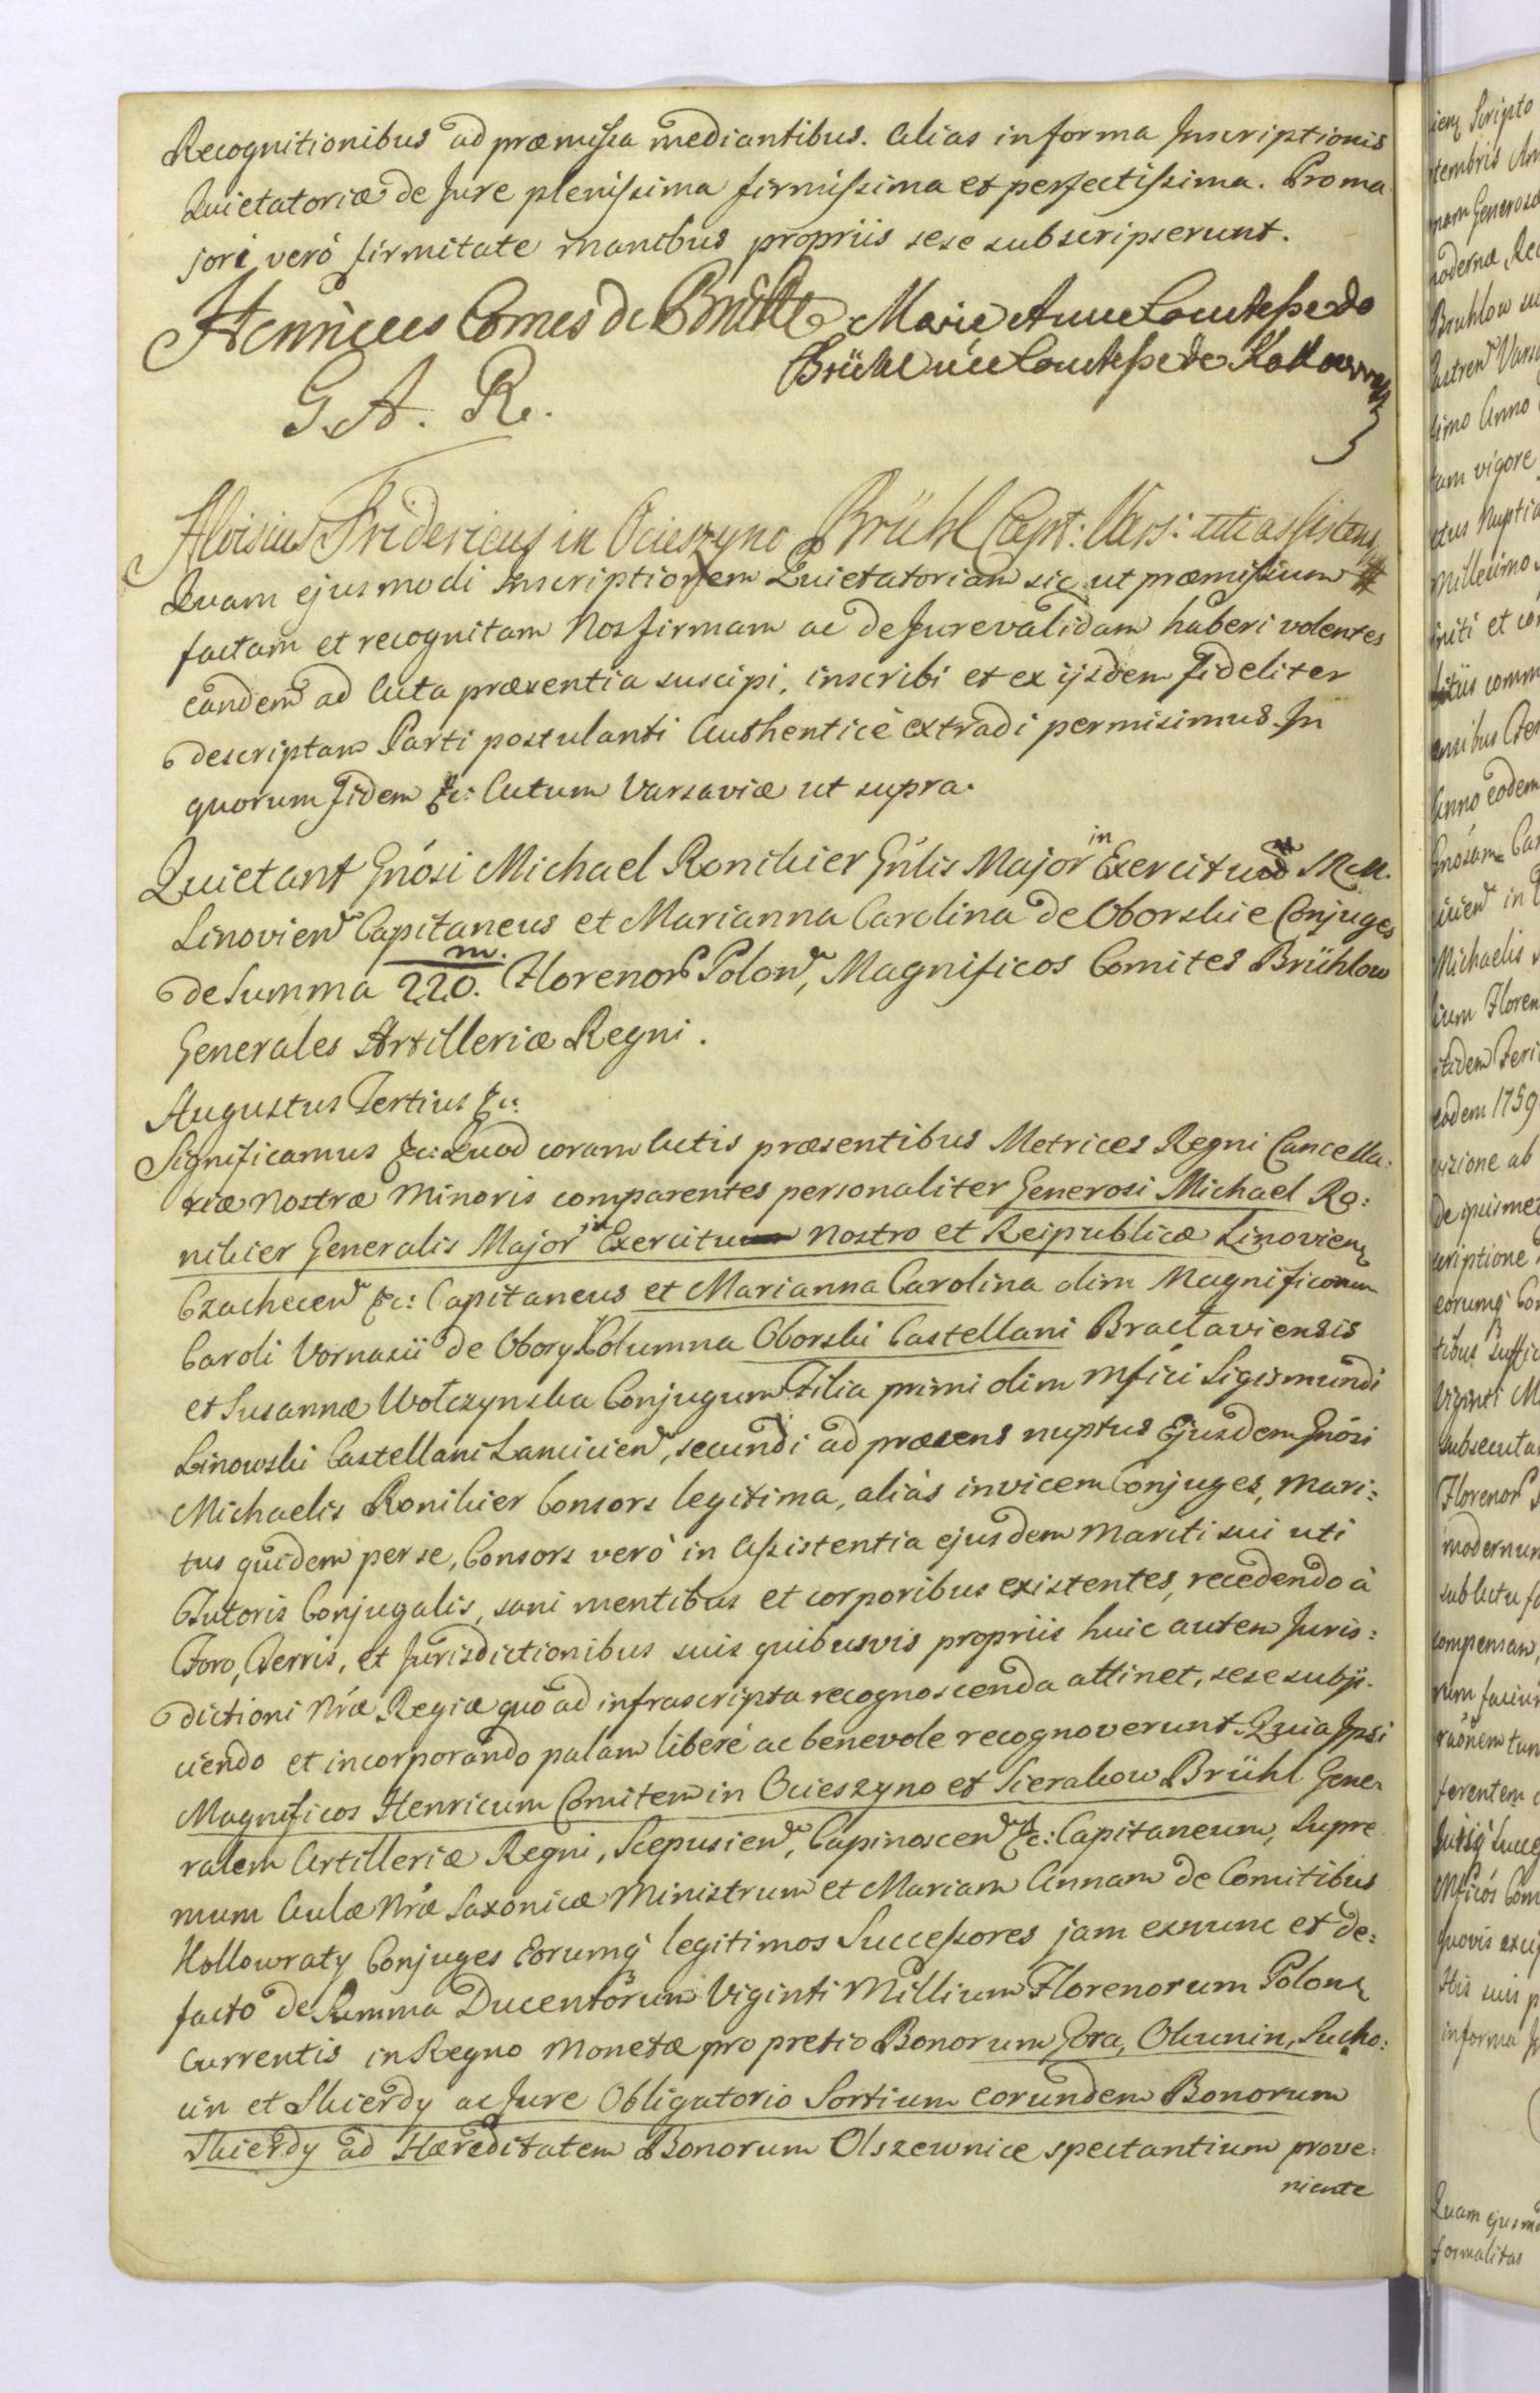 Recognitionibus ad præmissa mediantibus. Alias in forma Inscriptionis
Quietatoriæ de Jure plenissima firmissima et perfectissima. Pro ma
jori veró firmitate manibus propriis sese subscripserunt.
Henricus Comes de Brühl Marie Anne Comtesse de
Brühl née Comtesse de Kolowrath
G. A. R.
Aloisius Fridericus in Ocieszyno Brühl Capt: Vars: uti assistens
Quam ejusmodi Inscriptionem Quietatoriam sic ut præmissum
factam et recognitam Nos firmam ac de Jure validam haberi volentes
eandem ad Acta præsentia suscipi, inscribi et ex ijsdem fideliter
descriptam Parti postulanti Authenticè extradi permisimus. In
quorum fidem &c: Actum Varsaviæ ut supra.
Quietant Gnósi Michael Ronikier Gńlis Major in Exercitu SRM.
Linovien Capitaneus et Marianna Carolina de Oborskie Conjuges
de Summa 220. m. Florenor Polon, Magnificos Comites Brühlow
Generales Artilleriæ Regni.
Augustus Tertius &c:
Significamus &c: Quod coram Actis præsentibus Metrices Regni Cancella:
riæ Nostræ Minoris comparentes personaliter Generosi Michael Ro:
nikier Generalis Major in Exercitu Nostro et Reipublicæ Linovien
Czachecen &c: Capitaneus et Marianna Carolina olim Magnificorum
Caroli Vornasii de Obory Columna Oborski Castellani Braclaviensis
et Susannæ Wołczynska Conjugum Filia primi olim Mfici Sigismundi
Linowski Castellani Lancicien, secundi ad præsens nuptus Ejusdem Gnósi
Michaelis Ronikier Consors legitima, aliàs invicem Conjuges, Mari:
tus quidem per se, Consors verò in Assistentia ejusdem Mariti sui uti
Tutoris Conjugalis, sani mentibus et corporibus existentes, recedendo à
Foro, Terris, et Jurisdictionibus suis quibusvis propriis huic autem Juris:
dictioni Nræ Regiæ quo ad infrascripta recognoscenda attinet, sese subji:
ciendo et incorporando palam liberé ac benevole recognoverunt. Quia Ipsi
Magnificos Henricum Comitem in Ocieszyno et Sierakow Brühl Gene
ralem Artilleriæ Regni, Scepusien, Capinoscen &c: Capitaneum, Supre
mum Aulæ Nræ Saxonicæ Ministrum et Mariam Annam de Comitibus
Kollowraty Conjuges Eorumq legitimos Successores jam exnunc et de:
facto de Summa Ducentorum Viginti Millium Florenorum Polon
Currentis in Regno Monetæ pro pretio Bonorum Gora, Okunin, Sucho:
cin et Skierdy ac Jure Obligatorio Sortium eorundem Bonorum
Skierdy ad Hæreditatem Bonorum Olszewnice spectantium prove:
niente